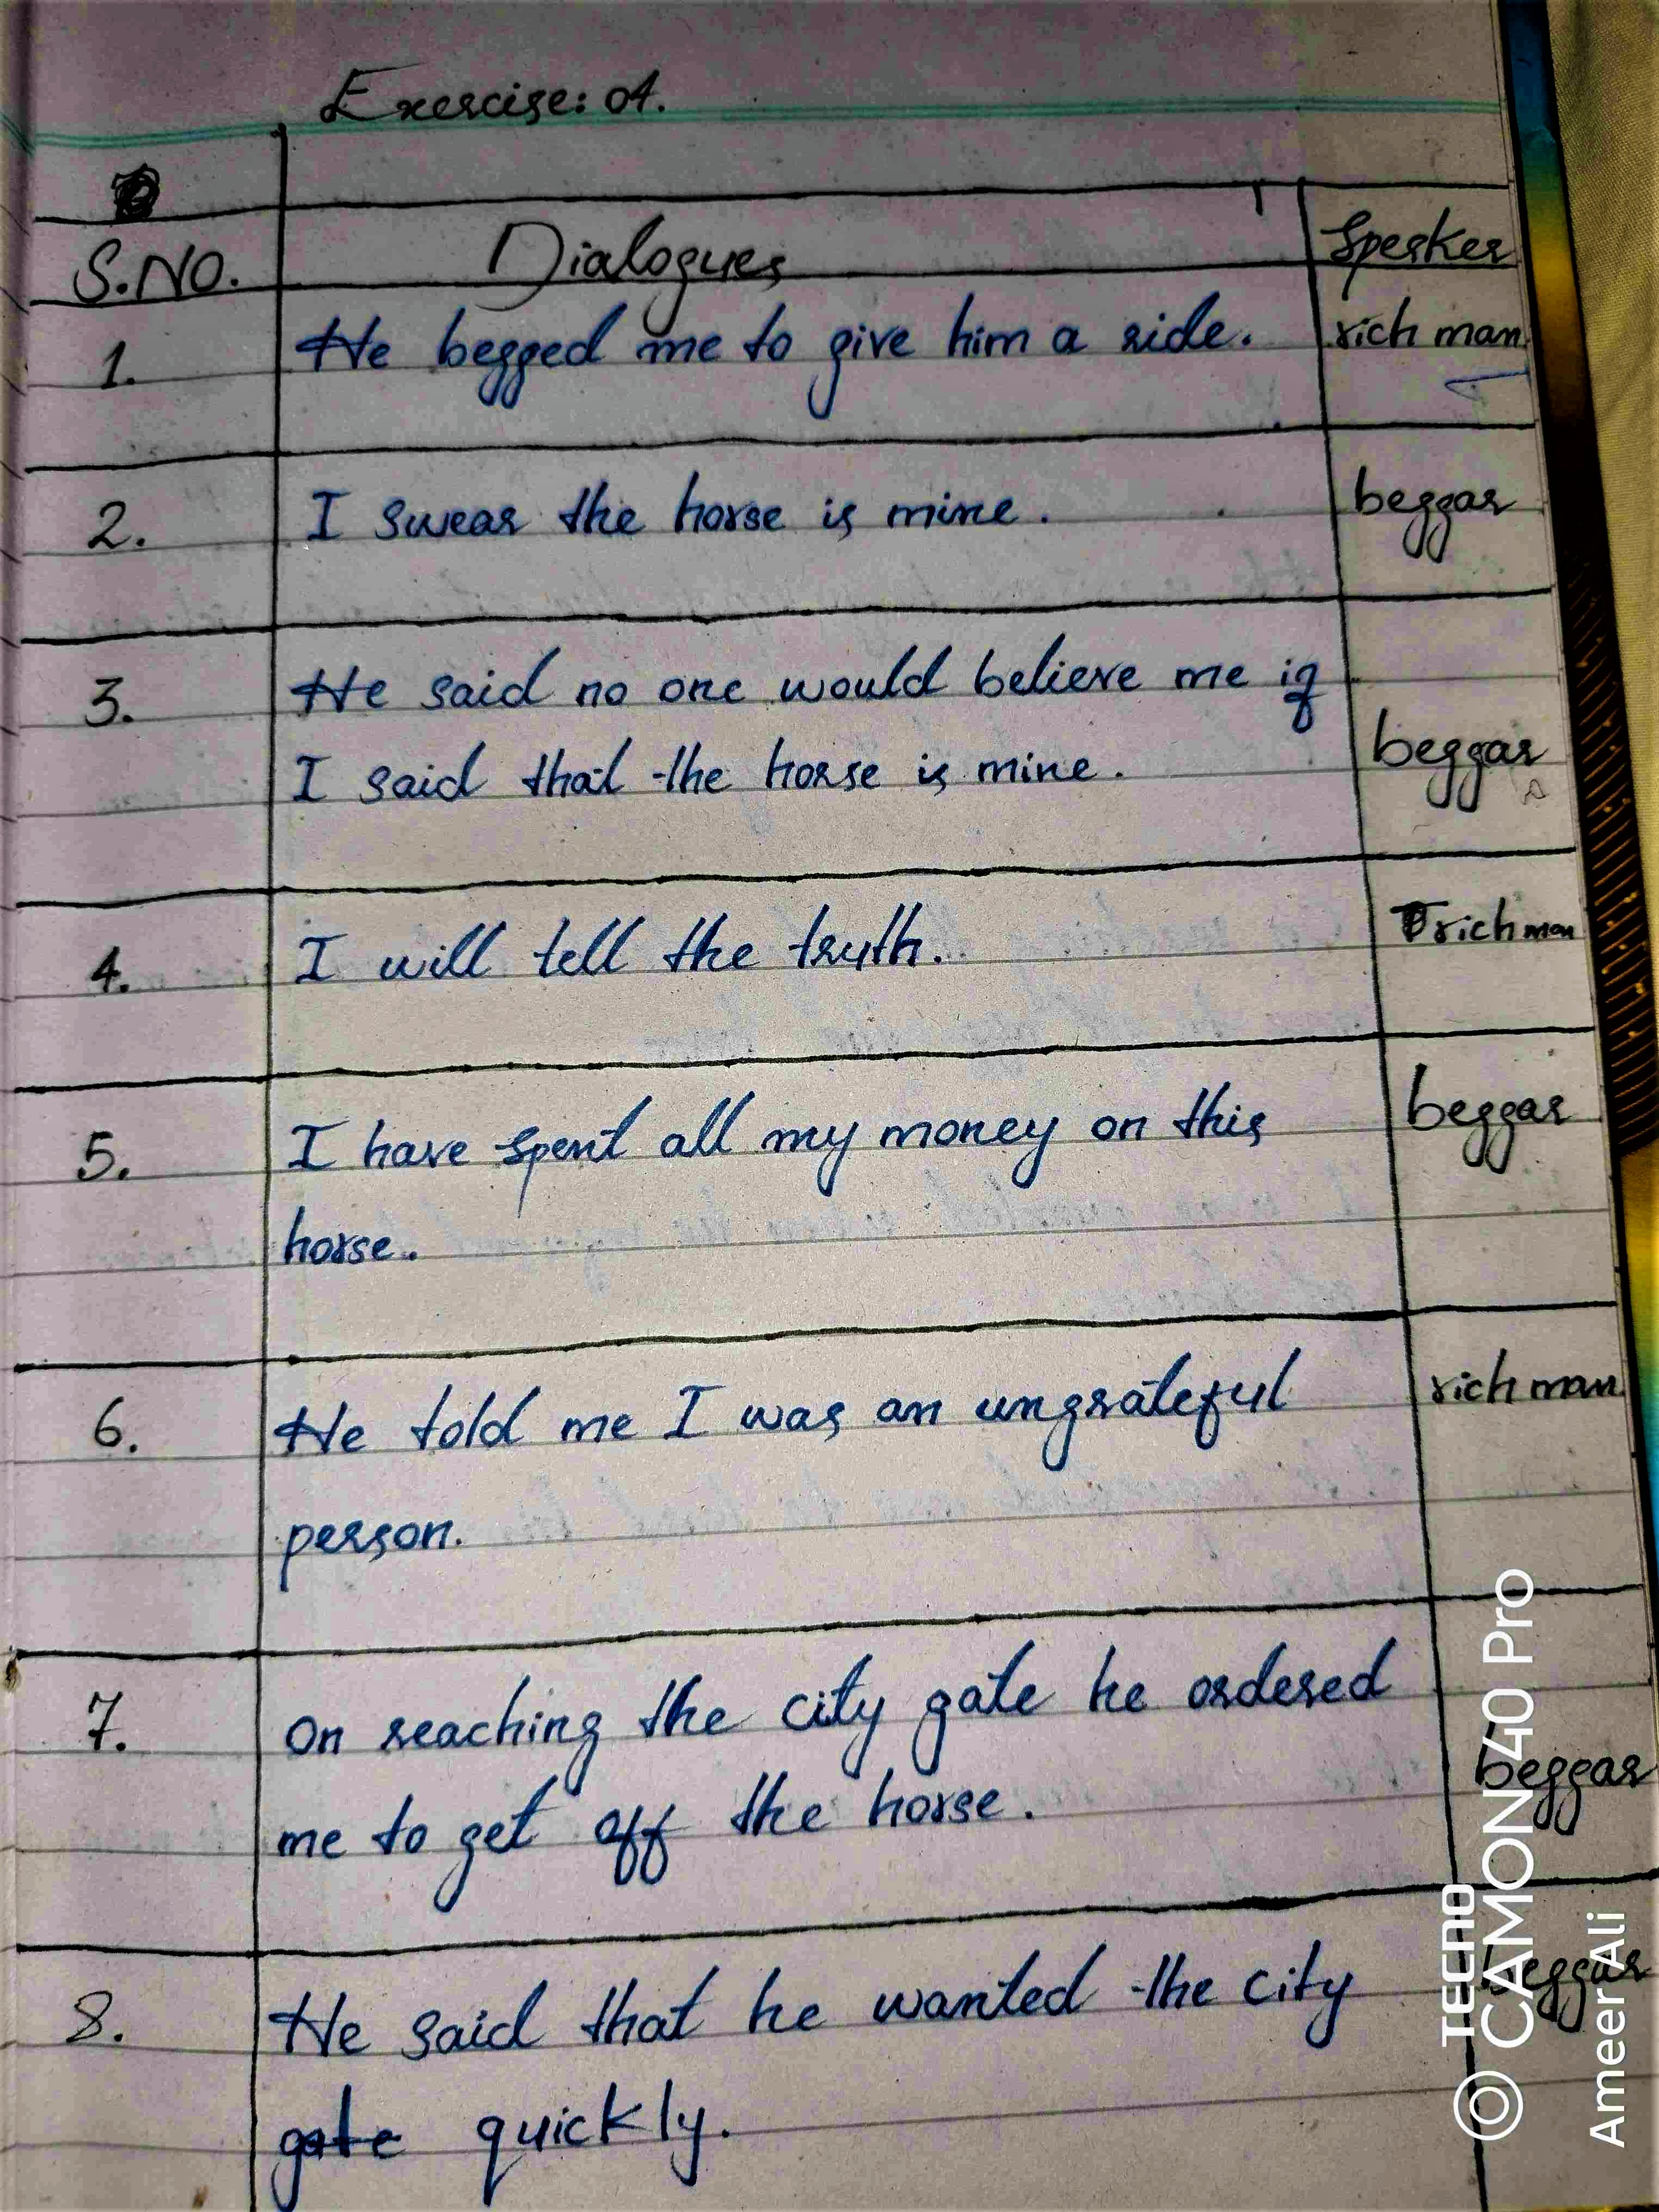 Exercise: 04.
S.NO. Dialogues Spesker
1. He begged me to give him a ride. rich man
2. I swear the horse is mine. beggar
3. He said no one would believe me if
I said that the horse is mine. beggar
4. I will tell the truth. rich man
5. I have spent all my money on this beggar
horse.
6. He told me I was an ungrateful rich man
person.
7. on reaching the city gate he ordered
me to get off the horse. beggar
8. He said that he wanted the city beggar
gate quickly.
TECNO
CAMON 40 Pro
Ameer Ali